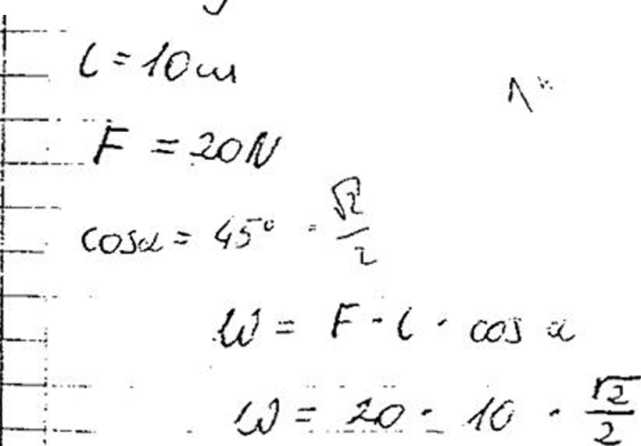 l = 10 m
F = 20N
cosα = 45° = √2/2
W = F · l · cos α
W = 20 · 10 · √2/2